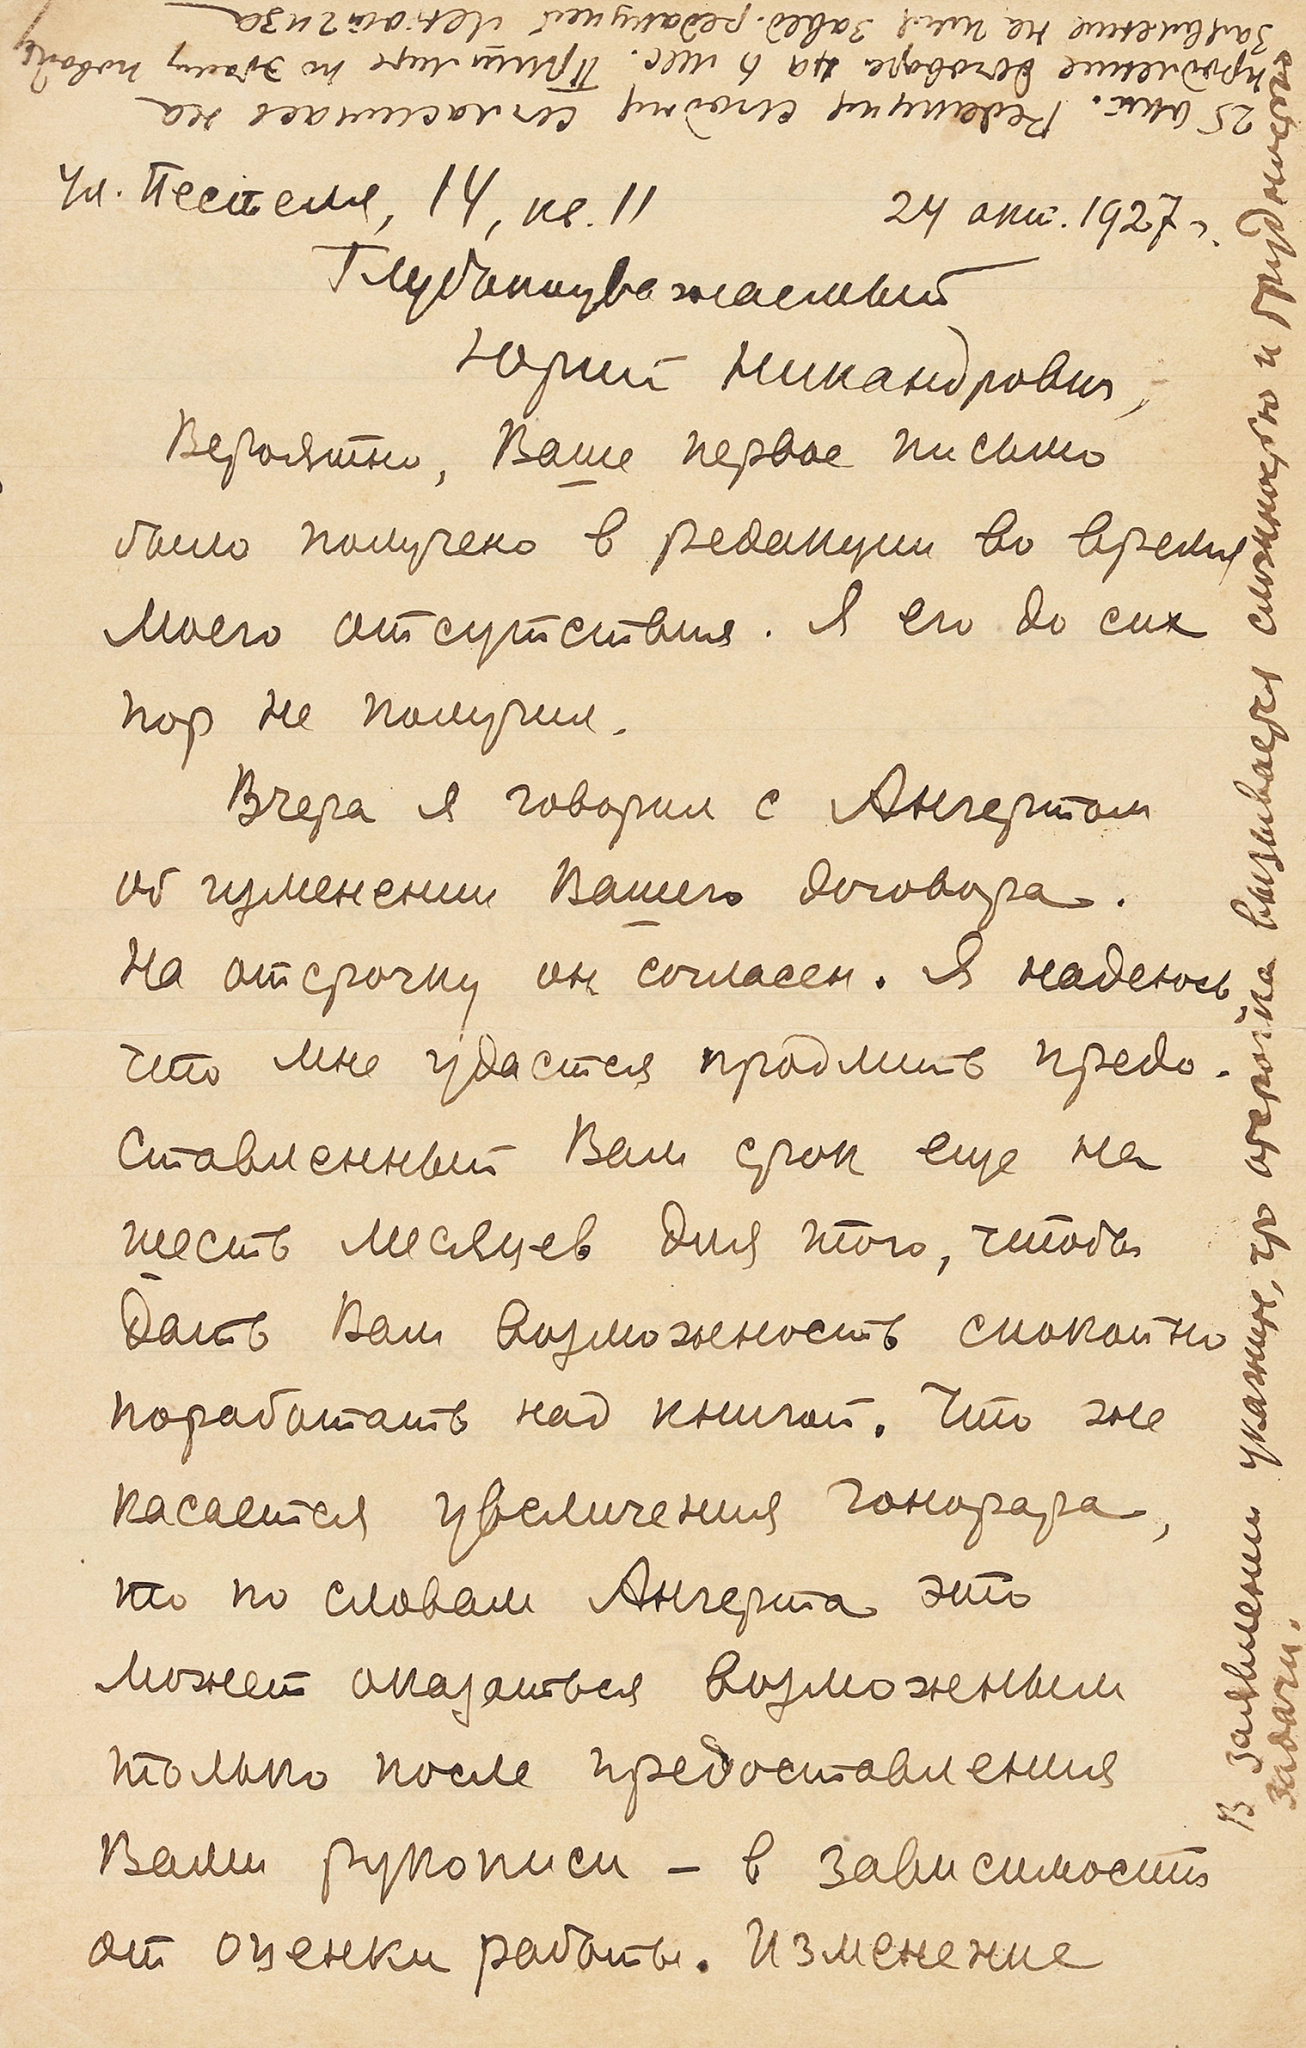 25 окт. Редакция сегодня согласилась на
продление договора на 6 мес. Пришлите по этому поводу
заявление на имя завед. редакцией Леногиза
ул. Пестеля, 14, кв. 11
24 окт. 1927 г.
Глубокоуважаемый
Юрий Никандрович,
Вероятно, Ваше первое письмо
было получено в редакции во время
моего отсутствия. Я его до сих
пор не получил.
Вчера я говорил с Ангертом
об изменении Вашего договора.
На отсрочку он согласен. Я надеюсь
что мне удастся продлить предо-
ставленный Вам срок еще на
шесть месяцев для того, чтобы
дать Вам возможность спокойно
поработать над книгой. Что же
касается увеличения гонорара,
то по словам Ангерта это
может оказаться возможным
только после предоставления
Вами рукописи – в зависимости
от оценки работы. Изменение
В заявлении укажите, что отсрочка вызывается сложностью и трудностью
задачи.